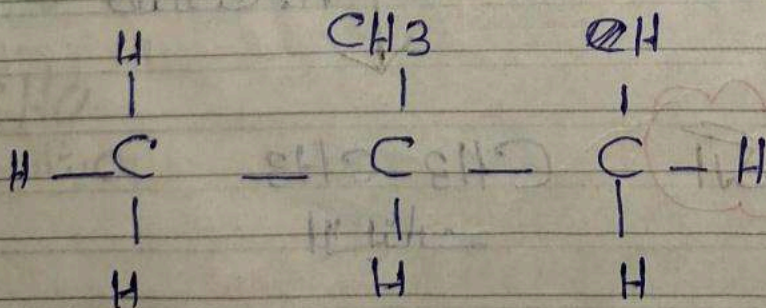 H CH3 H
H — C — C — C — H
H H H